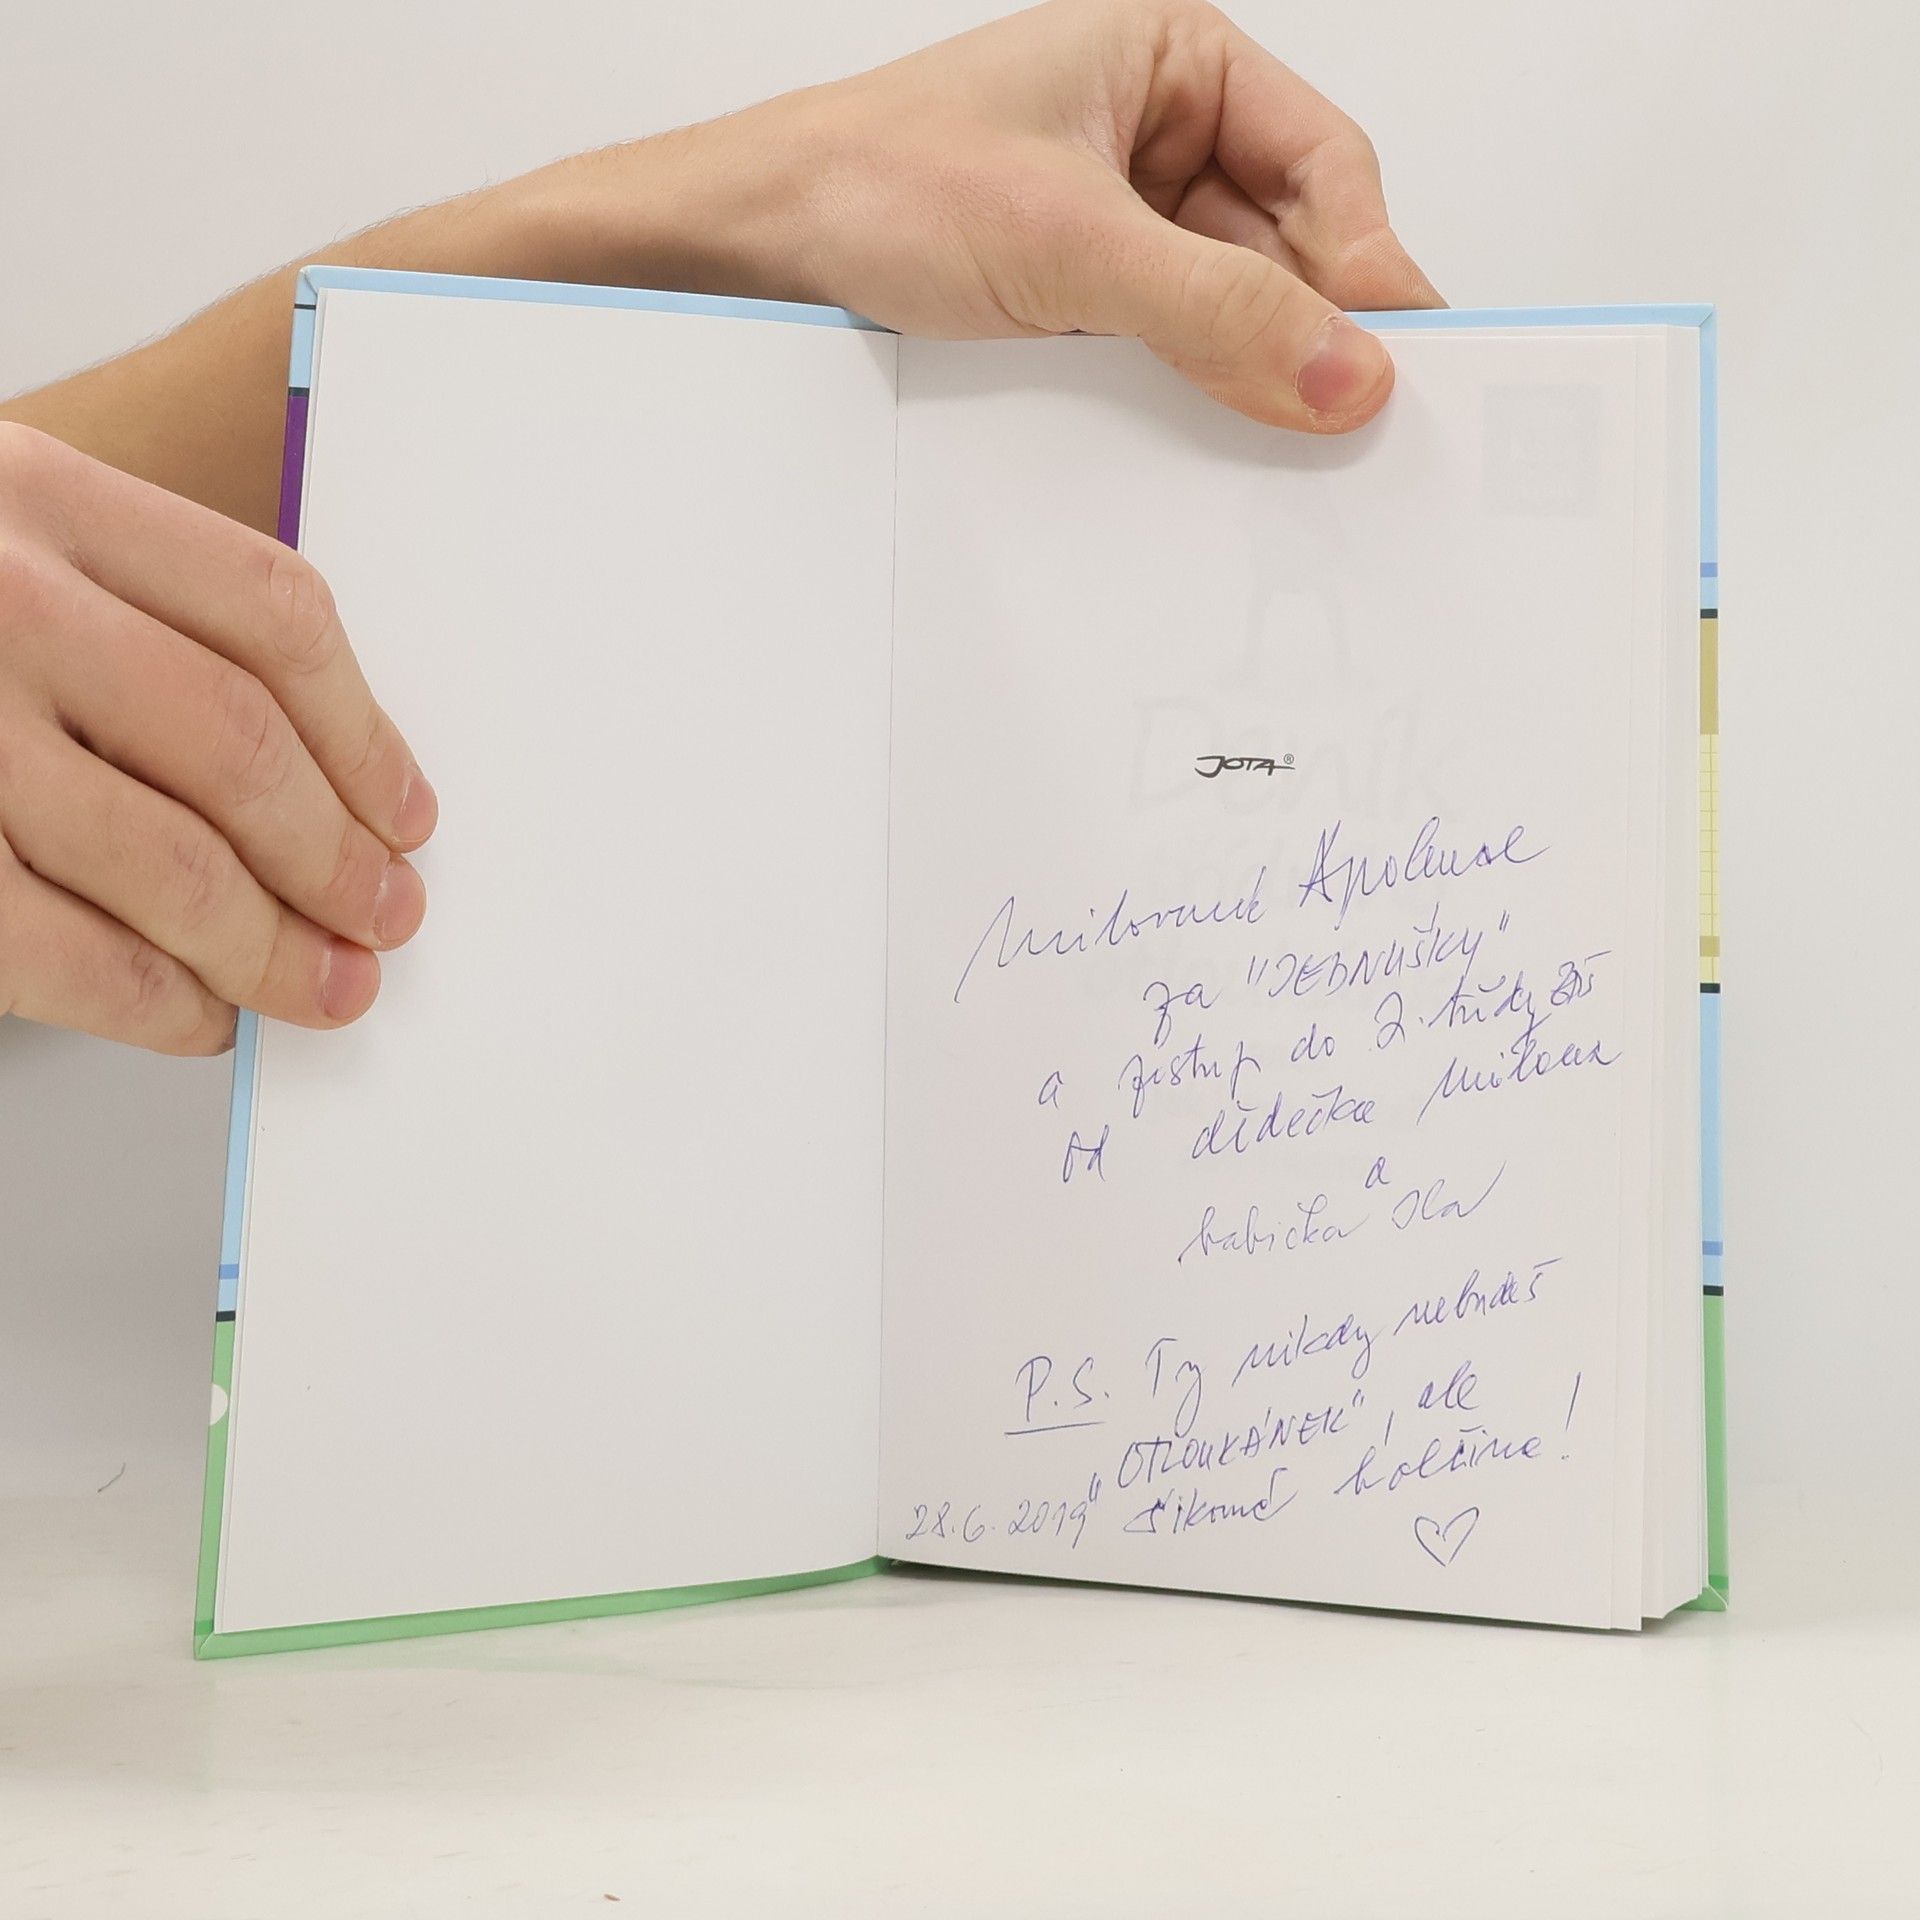 JOTA®
Milované Apoleně
za "JEDNUŠKY"
a postup do 2. třídy ZŠ
od dědečka Miloše
a
babička Ila
P.S. Ty nikdy nebudeš
"OTLOUKÁNEK", ale
28.6.2019 šikovná holčina!